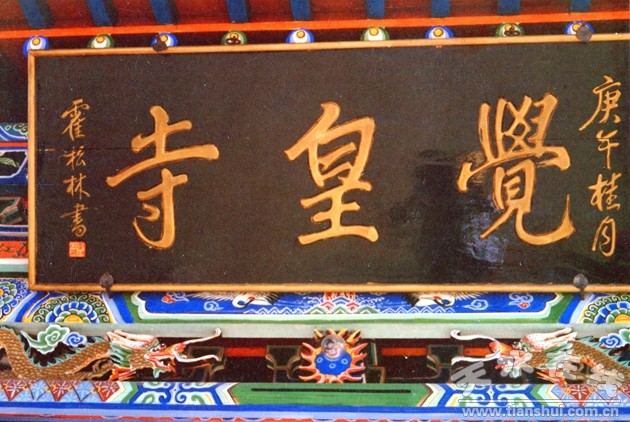 庚午桂月
覺皇寺
霍松林書
天水在线
www.tianshui.com.cn